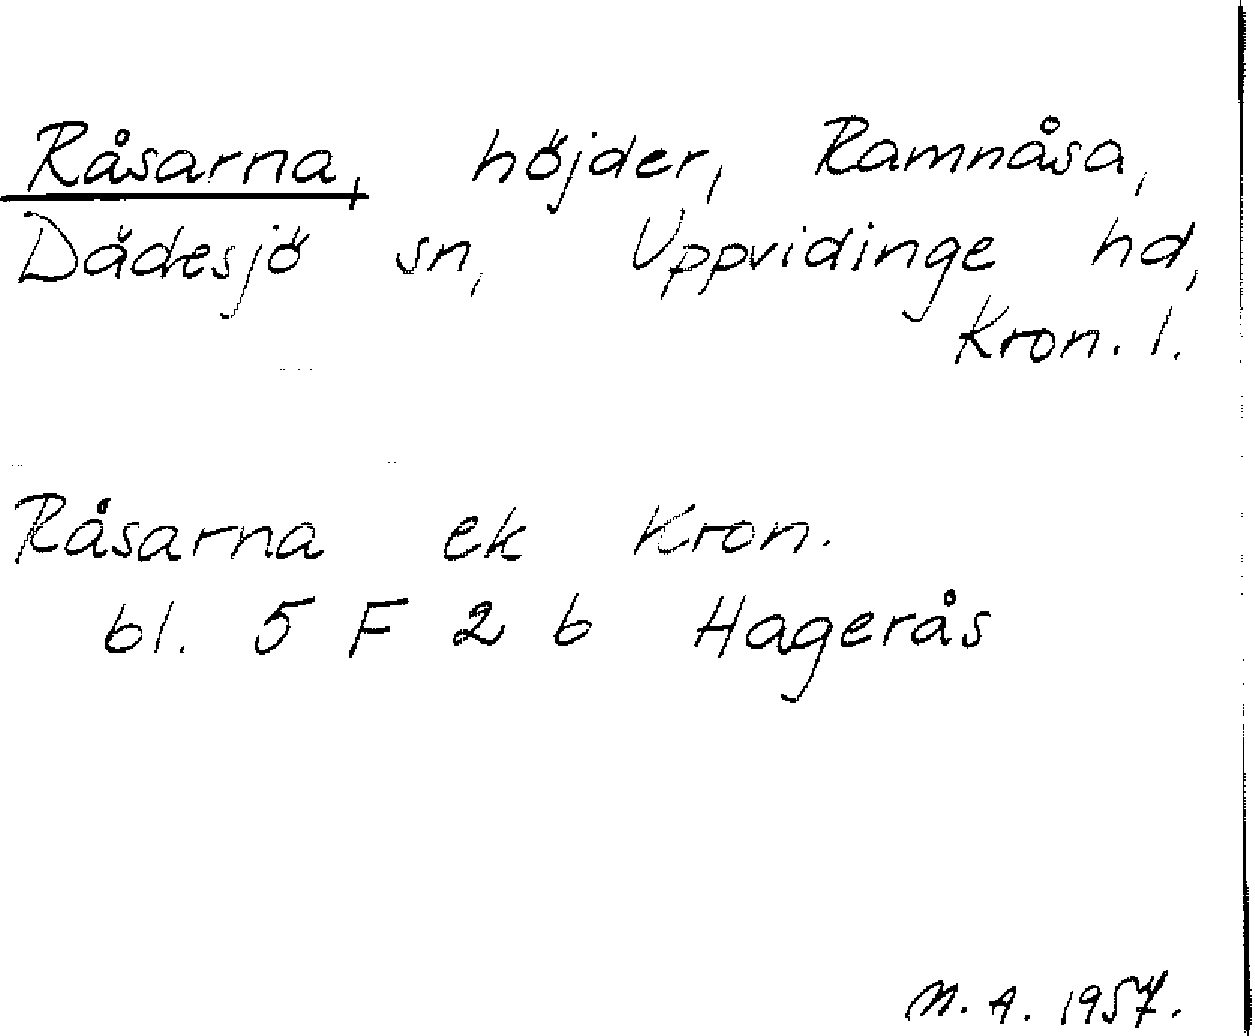 Råsarna, höjder, Ramnåsa,
Dädesjö sn, Uppvidinge hd,
Kron. l.
Råsarna ek Kron.
bl. 5 F 2 b Hagerås
M. A. 1957.